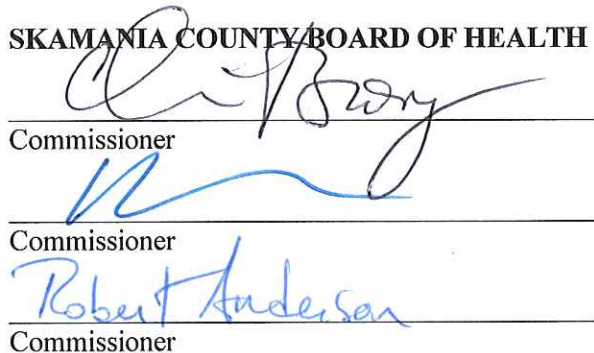 SKAMANIA COUNTY BOARD OF HEALTH
Commissioner
Commissioner
Robert Anderson
Commissioner